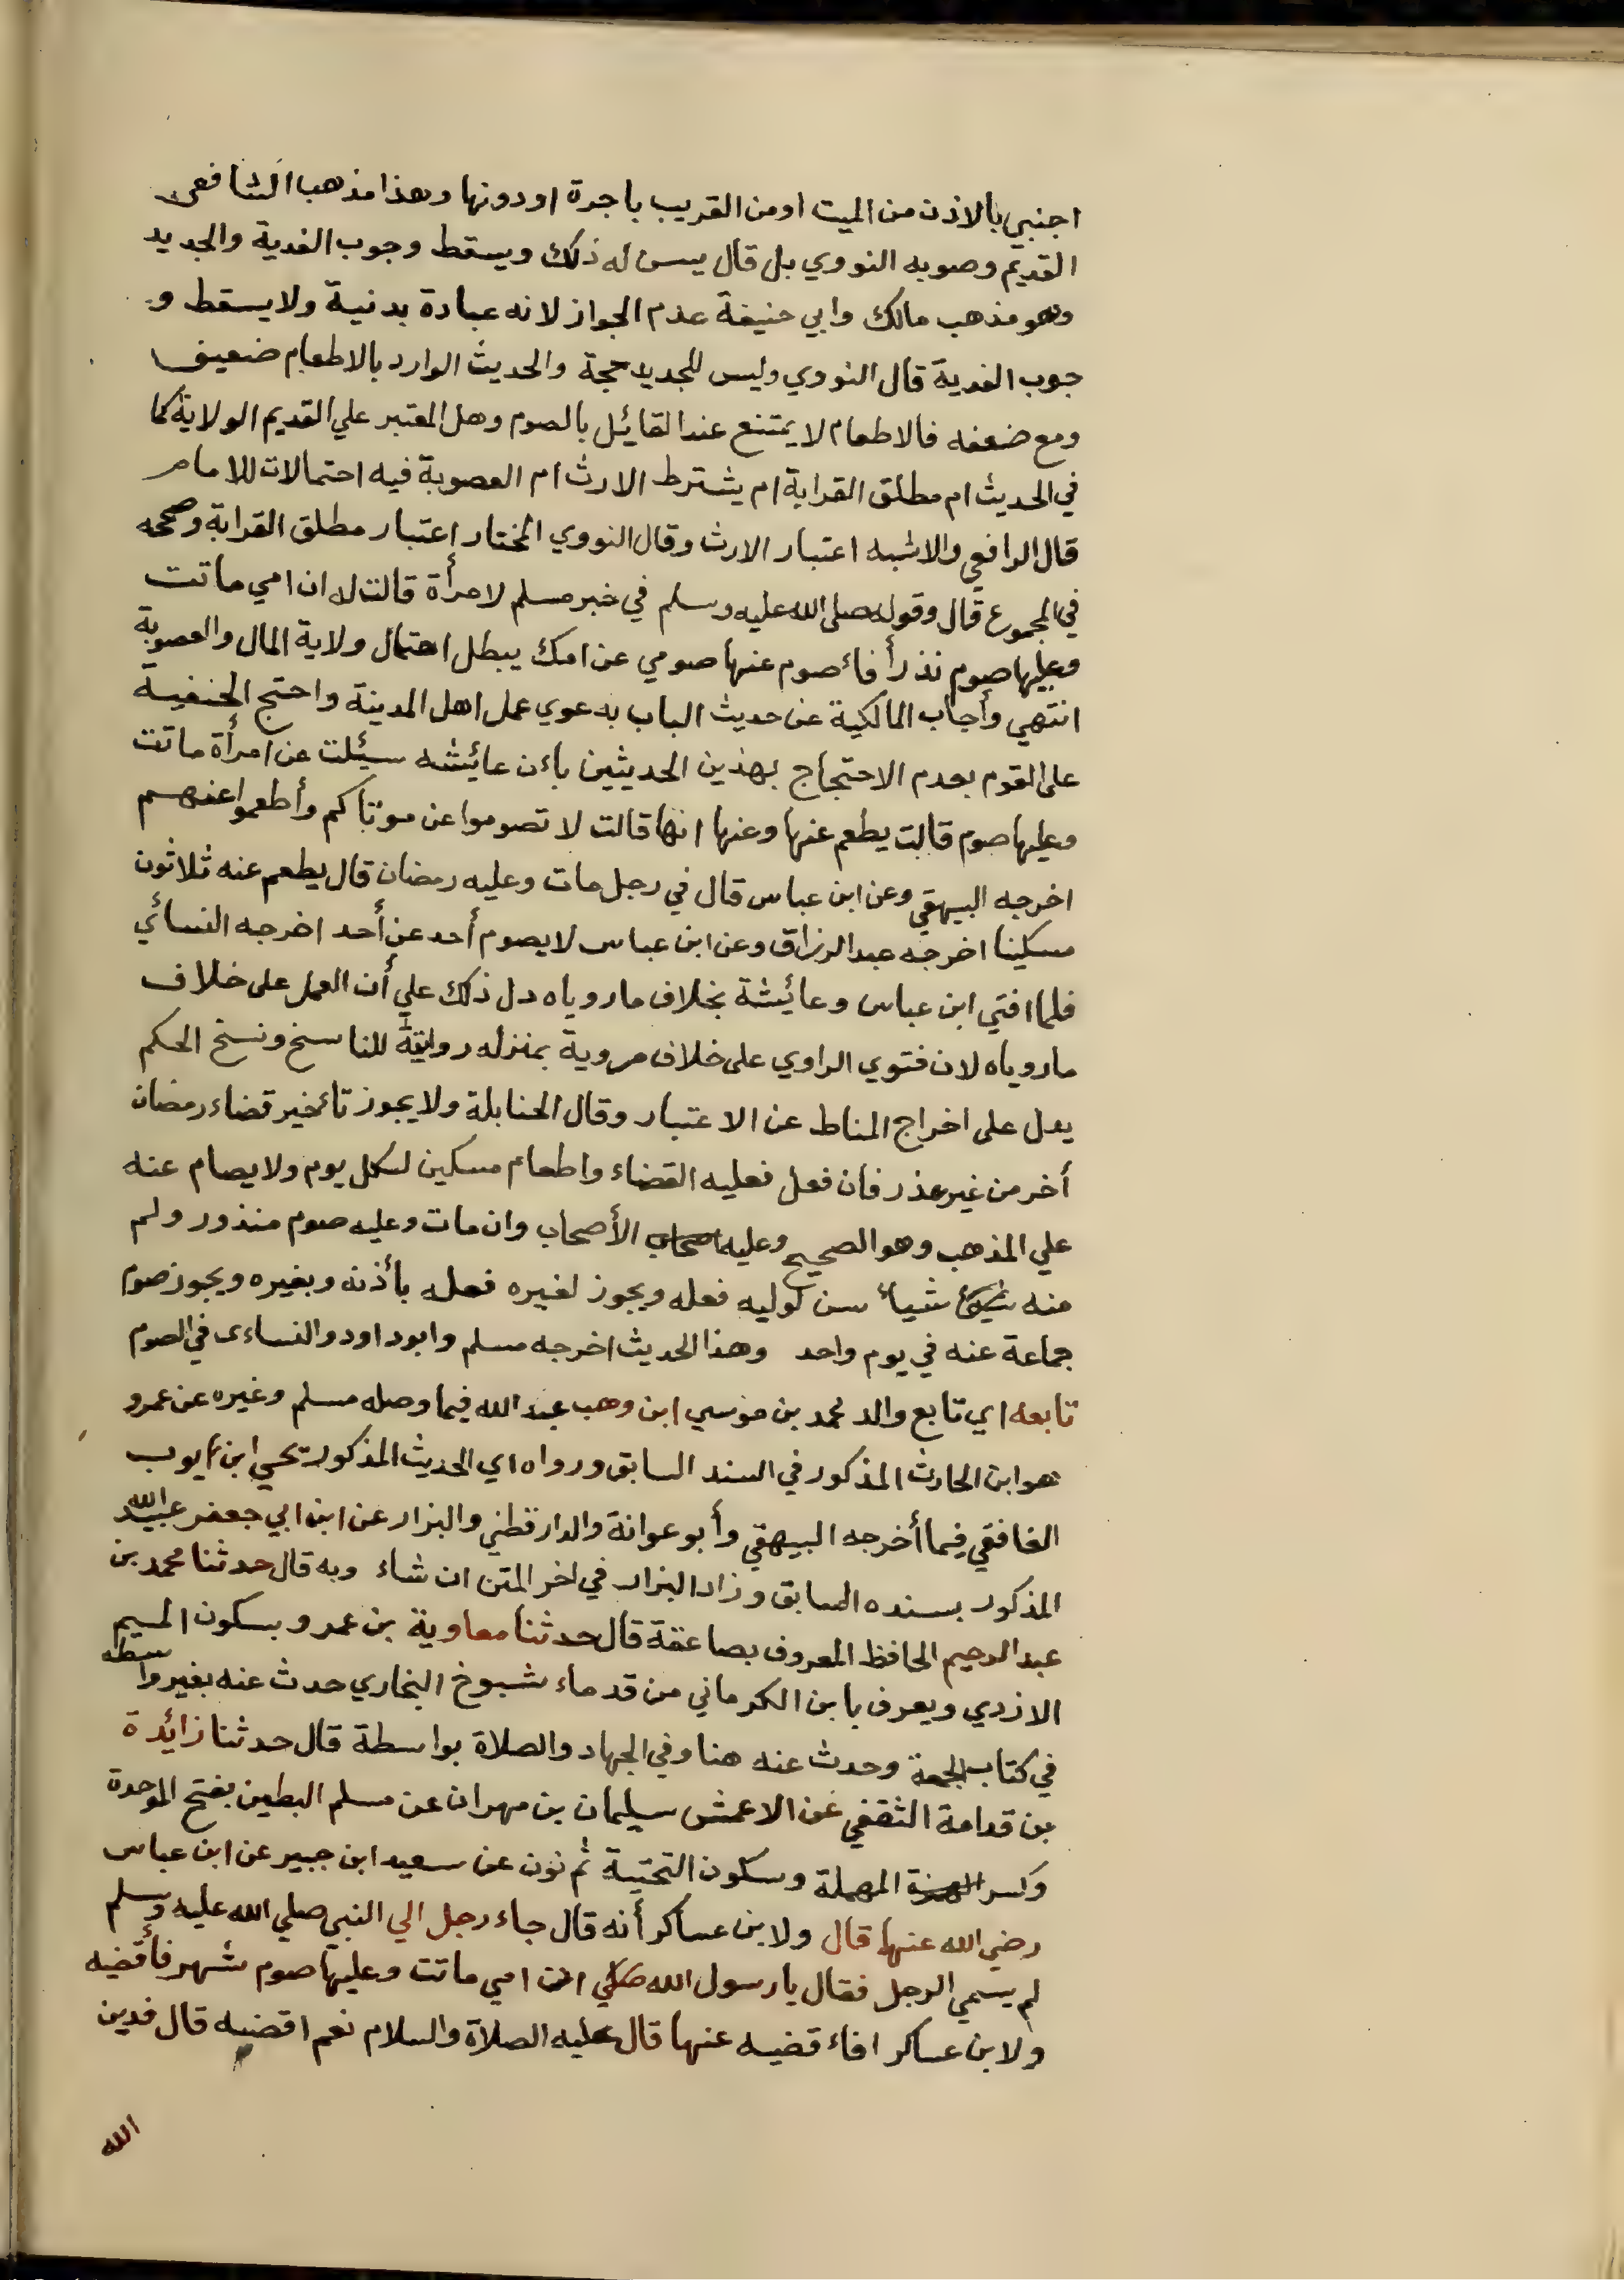 اجنبي بالاذن من الميت او من القريب باجرة او دونها وهذا مذهب الشافعي
القديم وصوبه النووي بل قال يسن له ذلك ويسقط وجوب الفدية والجديد
وهو مذهب مالك وابي حنيفة عدم الجواز لانه عبادة بدنية ولا يسقط و
جوب الفدية قال النووي وليس للجديد حجة والحديث الوارد بالاطعام ضعيف
ومع ضعفه فالاطعام لا يمتنع عند القائل بالصوم وهل المعتبر علي القديم الولاية كما
في الحديث ام مطلق القرابة ام يشترط الارث ام العصوبة فيه احتمالات للامام
قال الرافعي والاشبه اعتبار الارث وقال النووي المختار اعتبار مطلق القرابة وصححه
في المجموع قال وقوله صلى الله عليه وسلم في خبر مسلم لامرأة قالت له ان امي ماتت
وعليها صوم نذر أفاءصوم عنها صومي عن امك يبطل احتمال ولاية المال والعصوبة
انتهي وأجاب المالكية عن حديث الباب بدعوي عمل اهل المدينة واحتج الحنفية
على القوم بعدم الاحتجاج بهذين الحديثين باءن عائشه سئلت عن امرأة ماتت
وعليها صوم قالت يطعم عنها وعنها انها قالت لا تصوموا عن موتاكم وأطعموا عنهم
اخرجه البيهقي وعن ابن عباس قال في رجل مات وعليه رمضان قال يطعم عنه ثلاثون
مسكينا اخرجه عبد الرزاق وعن ابن عباس لا يصوم أحد عن أحد اخرجه النسائي
فلما افتي ابن عباس وعائشة بخلاف ما روياه دل ذلك علي أن العمل على خلاف
ما روياه لان فتوي الراوي على خلاف مروية بمنزله روايتة للناسخ ونسخ الحكم
يدل على اخراج المناط عن الاعتبار وقال الحنابلة ولا يجوز تاءخير قضاء رمضان
أخر من غير عذر فان فعل فعليه القضاء واطعام مسكين لكل يوم ولا يصام عنه
علي المذهب وهو الصحيح وعليه الأصحاب وان مات وعليه صوم منذور ولم
منه شياء سن لوليه فعله ويجوز لغيره فعله بأذنه وبغيره ويجوز صوم
جماعة عنه في يوم واحد وهذا الحديث اخرجه مسلم وابو داود والنساءى في الصوم
تابعه اي تابع والد محمد بن موسي ابن وهب عبد الله فيما وصله مسلم وغيره عن عمرو
هو ابن الحارث المذكور في السند السابق ورواه اي الحديث المذكور يحي ابن ايوب
الغافقي فيما أخرجه البيهقي وأبو عوانة والدارقطني والبزار عن ابن ابي جعفر عبيد الله
المذكور بسنده السابق وزاد البزار في اخر المتن ان شاء وبه قال حدثنا محمد بن
عبد الرحيم الحافظ المعروف بصاعقة قال حدثنا معاوية بن عمرو بسكون الميم
الازدي ويعرف بابن الكرماني من قدماء شيوخ البخاري حدث عنه بغير واسطه
في كتاب الجمعة وحدث عنه هنا وفي الجهاد والصلاة بواسطة قال حدثنا زائدة
بن قدامة الثقفي عن الاعمش سليمان بن مهران عن مسلم البطين بفتح الموحدة
وكسر المهملة وسكون التحتية ثم نون عن سعيد ابن جبير عن ابن عباس
رضي الله عنها قال ولابن عساكر أنه قال جاء رجل الي النبي صلي الله عليه وسلم
لم يسمي الرجل فقال يا رسول الله ان امي ماتت وعليها صوم شهر فأقضيه
ولابن عساكر افاءقضيه عنها قال عليه الصلاة والسلام نعم اقضيه قال فدين
الله